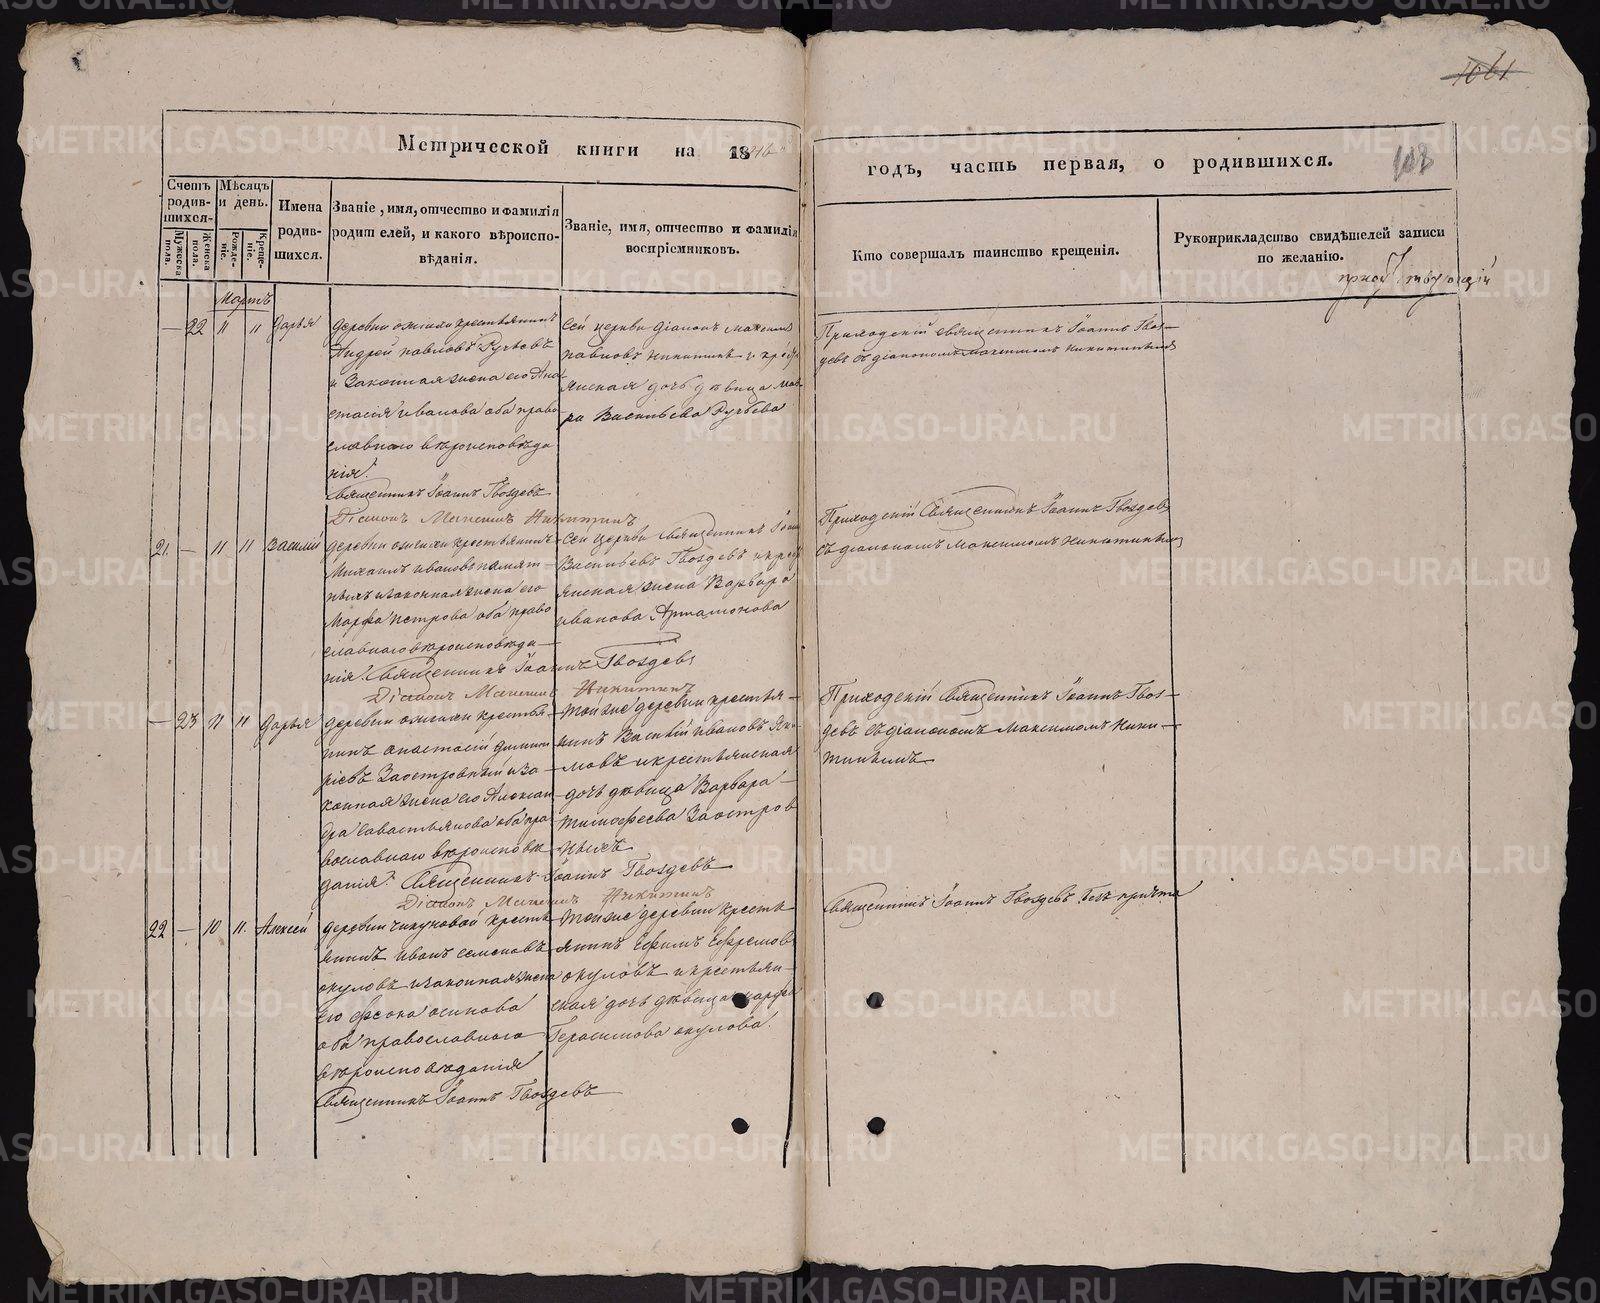 1061
Метрической книги на 1846
годъ, часть первая, о родившихся.
Счетъ родив-шихся.
Мужеска пола.
Женска пола.
Мѣсяцъ и день.
Рожде-ніе.
Креще-ніе.
Имена родив-шихся.
Званіе, имя, отчество и фамилія
родителей, и какого вѣроиспо-
вѣданія.
Званіе, имя, отчество и фамилія
воспріемниковъ.
Кто совершалъ таинство крещенія.
Рукоприкладство свидѣтелей записи
по желанію.
Мартъ
22 11 11 Дарья
деревни крестьянинъ
Андрей Павловъ Ручьевъ
и законная жена его Ана
стасія Иванова оба право
славнаго вѣроисповѣда
нія.
Священникъ Іоаннъ Гвоздевъ
Діаконъ Максимъ Никитинъ
Сей церкви діаконъ Максимъ
Павловъ Никитинъ и крестья
янская дочь дѣвица Мав
ра Васильева Ручьева
Приходскій священникъ Іоаннъ Гвоз-
девъ съ діакономъ Максимомъ Никитинымъ
21 11 11 Василій
деревни крестьянинъ
Михаилъ Ивановъ Памят-
ныхъ и законная жена его
Марфа Петрова оба право
славнаго вѣроисповѣда-
нія. Священникъ Іоаннъ Гвоздевъ
Діаконъ Максимъ Никитинъ
Сей церкви священникъ Іоаннъ
Васильевъ Гвоздевъ и кресть
янская жена Варвара
Иванова Артамонова
Приходскій Священникъ Іоаннъ Гвоздевъ
съ діакономъ Максимомъ Никитинымъ
23 11 11 Дарья
деревни крестья-
нинъ Анастасій Димит
ріевъ Заостровныхъ и за
конная жена его Алексан
дра Савастьянова оба пра
вославнаго вѣроисповѣ
данія. Священникъ Іоаннъ Гвоздевъ
Діаконъ Максимъ Никитинъ
Той же деревни крестья-
нинъ Василій Ивановъ Яки
мовъ и крестьянская
дочь дѣвица Варвара
Тимофеева Заостров
ныхъ
Приходскій Священникъ Іоаннъ Гвоз-
девъ съ діакономъ Максимомъ Ники-
тинымъ
22 10 11 Алексей
деревни Чикуновой кресть
янинъ Иванъ Семеновъ
Окуловъ и законная жена
его Фекла Осипова
оба православнаго
вѣроисповѣданія
Священникъ Іоаннъ Гвоздевъ
Той же деревни кресть
янинъ Ефимъ Ефремовъ
Окуловъ и крестьян-
ская дочь дѣвица Марфа
Герасимова Окулова.
Священникъ Іоаннъ Гвоздевъ безъ причта
METRIKI.GASO-URAL.RU